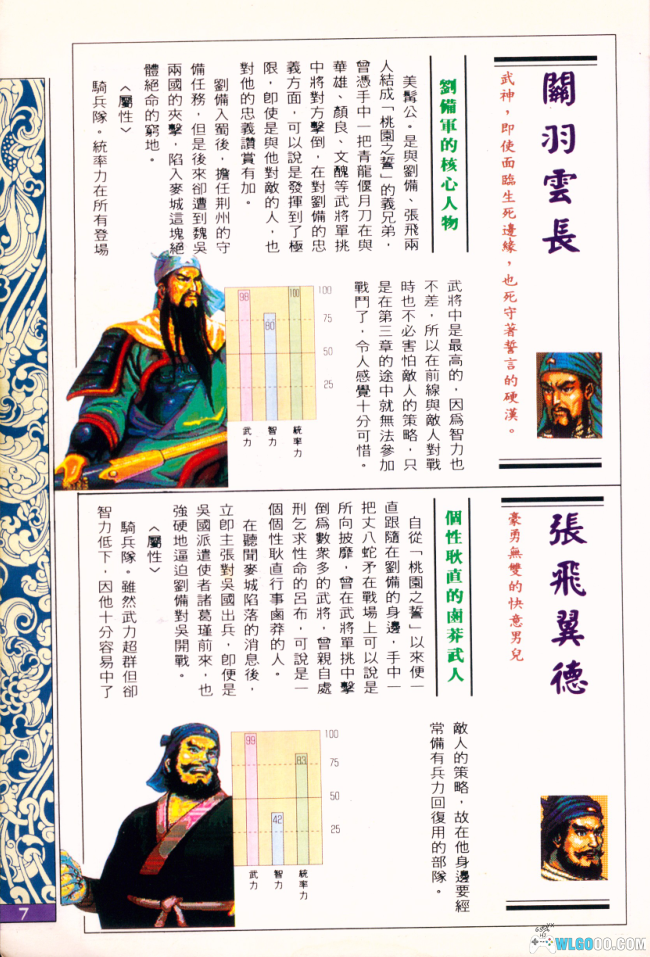 關羽雲長
武神，即使面臨生死邊緣，也死守著誓言的硬漢。
劉備軍的核心人物
美髯公。是與劉備、張飛兩
人結成「桃園之誓」的義兄弟，
曾憑手中一把青龍偃月刀在與
華雄、顏良、文醜等武將單挑
中將對方擊倒，在對劉備的忠
義方面，可以說是發揮到了極
限，即使是與他對敵的人，也
對他的忠義讚賞有加。
劉備入蜀後，擔任荆州的守
備任務，但是後來卻遭到魏吳
兩國的夾擊，陷入麥城這塊絕
體絕命的窮地。
〈屬性〉
騎兵隊。統率力在所有登場
武將中是最高的，因爲智力也
不差，所以在前線與敵人對戰
時也不必害怕敵人的策略，只
是在第三章的途中就無法參加
戰鬥了，令人感覺十分可惜。
98
80
100
100
75
50
25
武力
智力
統率力
張飛翼德
豪勇無雙的快意男兒
個性耿直的鹵莽武人
自從「桃園之誓」以來便一
直跟隨在劉備的身邊，手中一
把丈八蛇矛在戰場上可以說是
所向披靡，曾在武將單挑中擊
倒爲數衆多的武將，曾親自處
刑乞求性命的呂布，可說是一
個個性耿直行事鹵莽的人。
在聽聞麥城陷落的消息後，
立即主張對吳國出兵，即使是
吳國派遣使者諸葛瑾前來，也
強硬地逼迫劉備對吳開戰。
〈屬性〉
騎兵隊。雖然武力超群但卻
智力低下，因他十分容易中了
敵人的策略，故在他身邊要經
常備有兵力回復用的部隊。
99
42
83
100
75
50
25
武力
智力
統率力
7
WLGOOO.COM